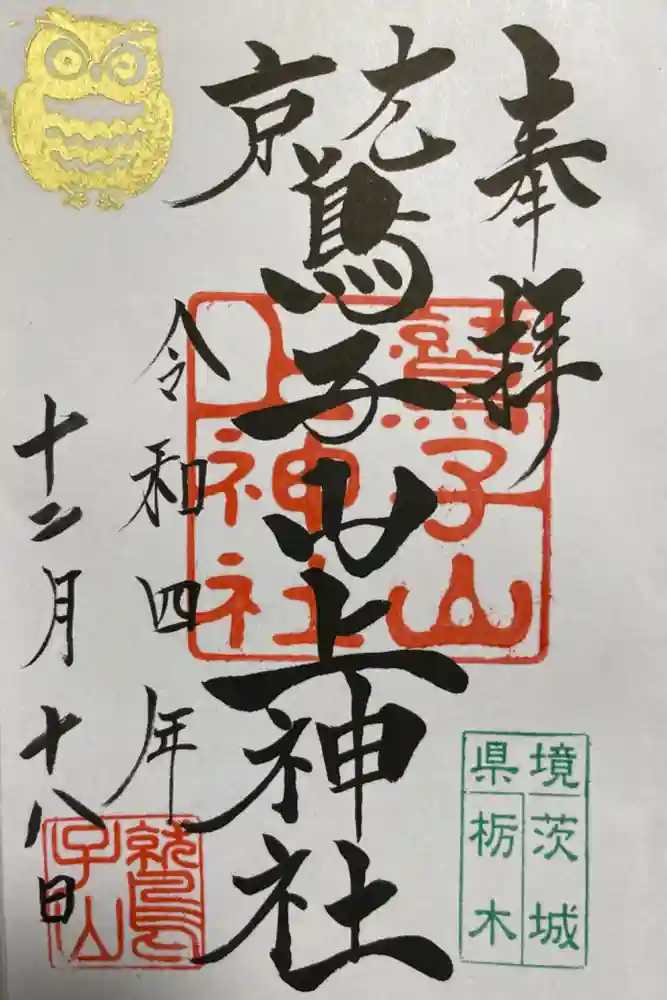 奉拝
鷲子山上神社
令和四年
十二月十八日
鷲子山
上神社
鷲子山
境茨城
県栃木